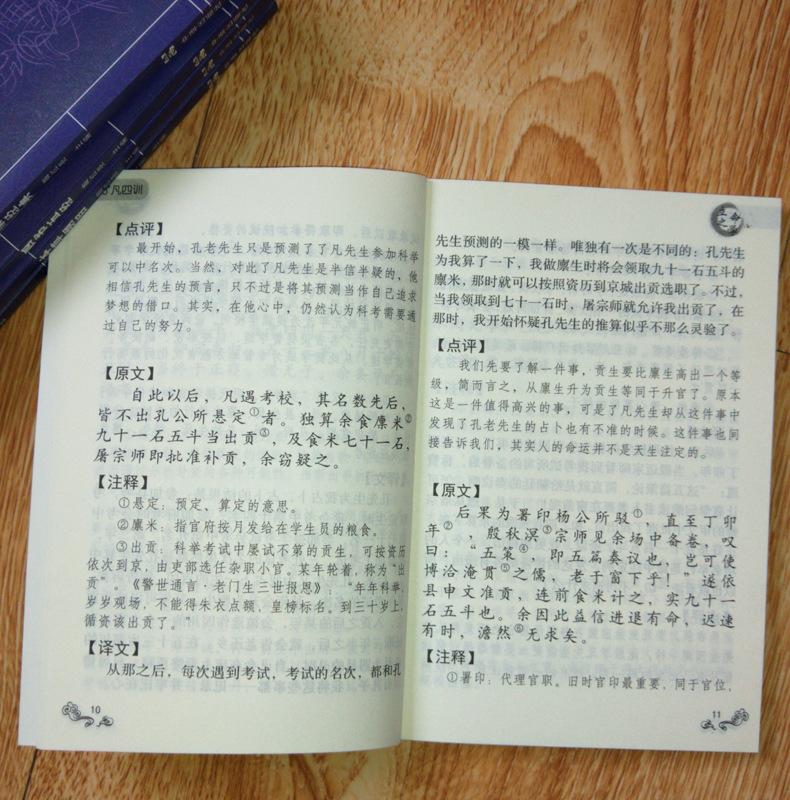 凡四训
【点评】
最开始，孔老先生只是预测了了凡先生参加科举
可以中名次。当然，对此了凡先生是半信半疑的，他
相信孔先生的预言，只不过是将其预测当作自己追求
梦想的借口。其实，在他心中，仍然认为科考需要通
过自己的努力。
【原文】
自此以后，凡遇考校，其名数先后，
皆不出孔公所悬定①者。独算余食廪米②
九十一石五斗当出贡③，及食米七十一石，
屠宗师即批准补贡，余窃疑之。
【注释】
①悬定：预定、算定的意思。
②廪米：指官府按月发给在学生员的粮食。
③出贡：科举考试中屡试不第的贡生，可按资历
依次到京，由吏部选任杂职小官。某年轮着，称为“出
贡”。《警世通言·老门生三世报恩》：“年年科举，
岁岁观场，不能得朱衣点额，皇榜标名。到三十岁上，
循资该出贡了。”
【译文】
从那之后，每次遇到考试，考试的名次，都和孔
10
先生预测的一模一样。唯独有一次是不同的：孔先生
为我算了一下，我做廪生时将会领取九十一石五斗的
廪米，那时就可以按照资历到京城出贡选职了。不过，
当我领取到七十一石时，屠宗师就允许我出贡了，在
那时，我开始怀疑孔先生的推算似乎不那么灵验了。
【点评】
我们先要了解一件事，贡生要比廪生高出一个等
级，简而言之，从廪生升为贡生等同于升官了。原本
这是一件值得高兴的事，可是了凡先生却从这件事中
发现了孔老先生的占卜也有不准的时候。这件事也间
接告诉我们，其实人的命运并不是天生注定的。
【原文】
后果为署印杨公所驳①，直至丁卯
年②，殷秋溟③宗师见余场中备卷，叹
曰：“五策④，即五篇奏议也，岂可使
博洽淹贯⑤之儒，老于窗下乎！”遂依
县申文准贡，连前食米计之，实九十一
石五斗也。余因此益信进退有命，迟速
有时，澹然⑥无求矣。
【注释】
①署印：代理官职。旧时官印最重要，同于官位，
11